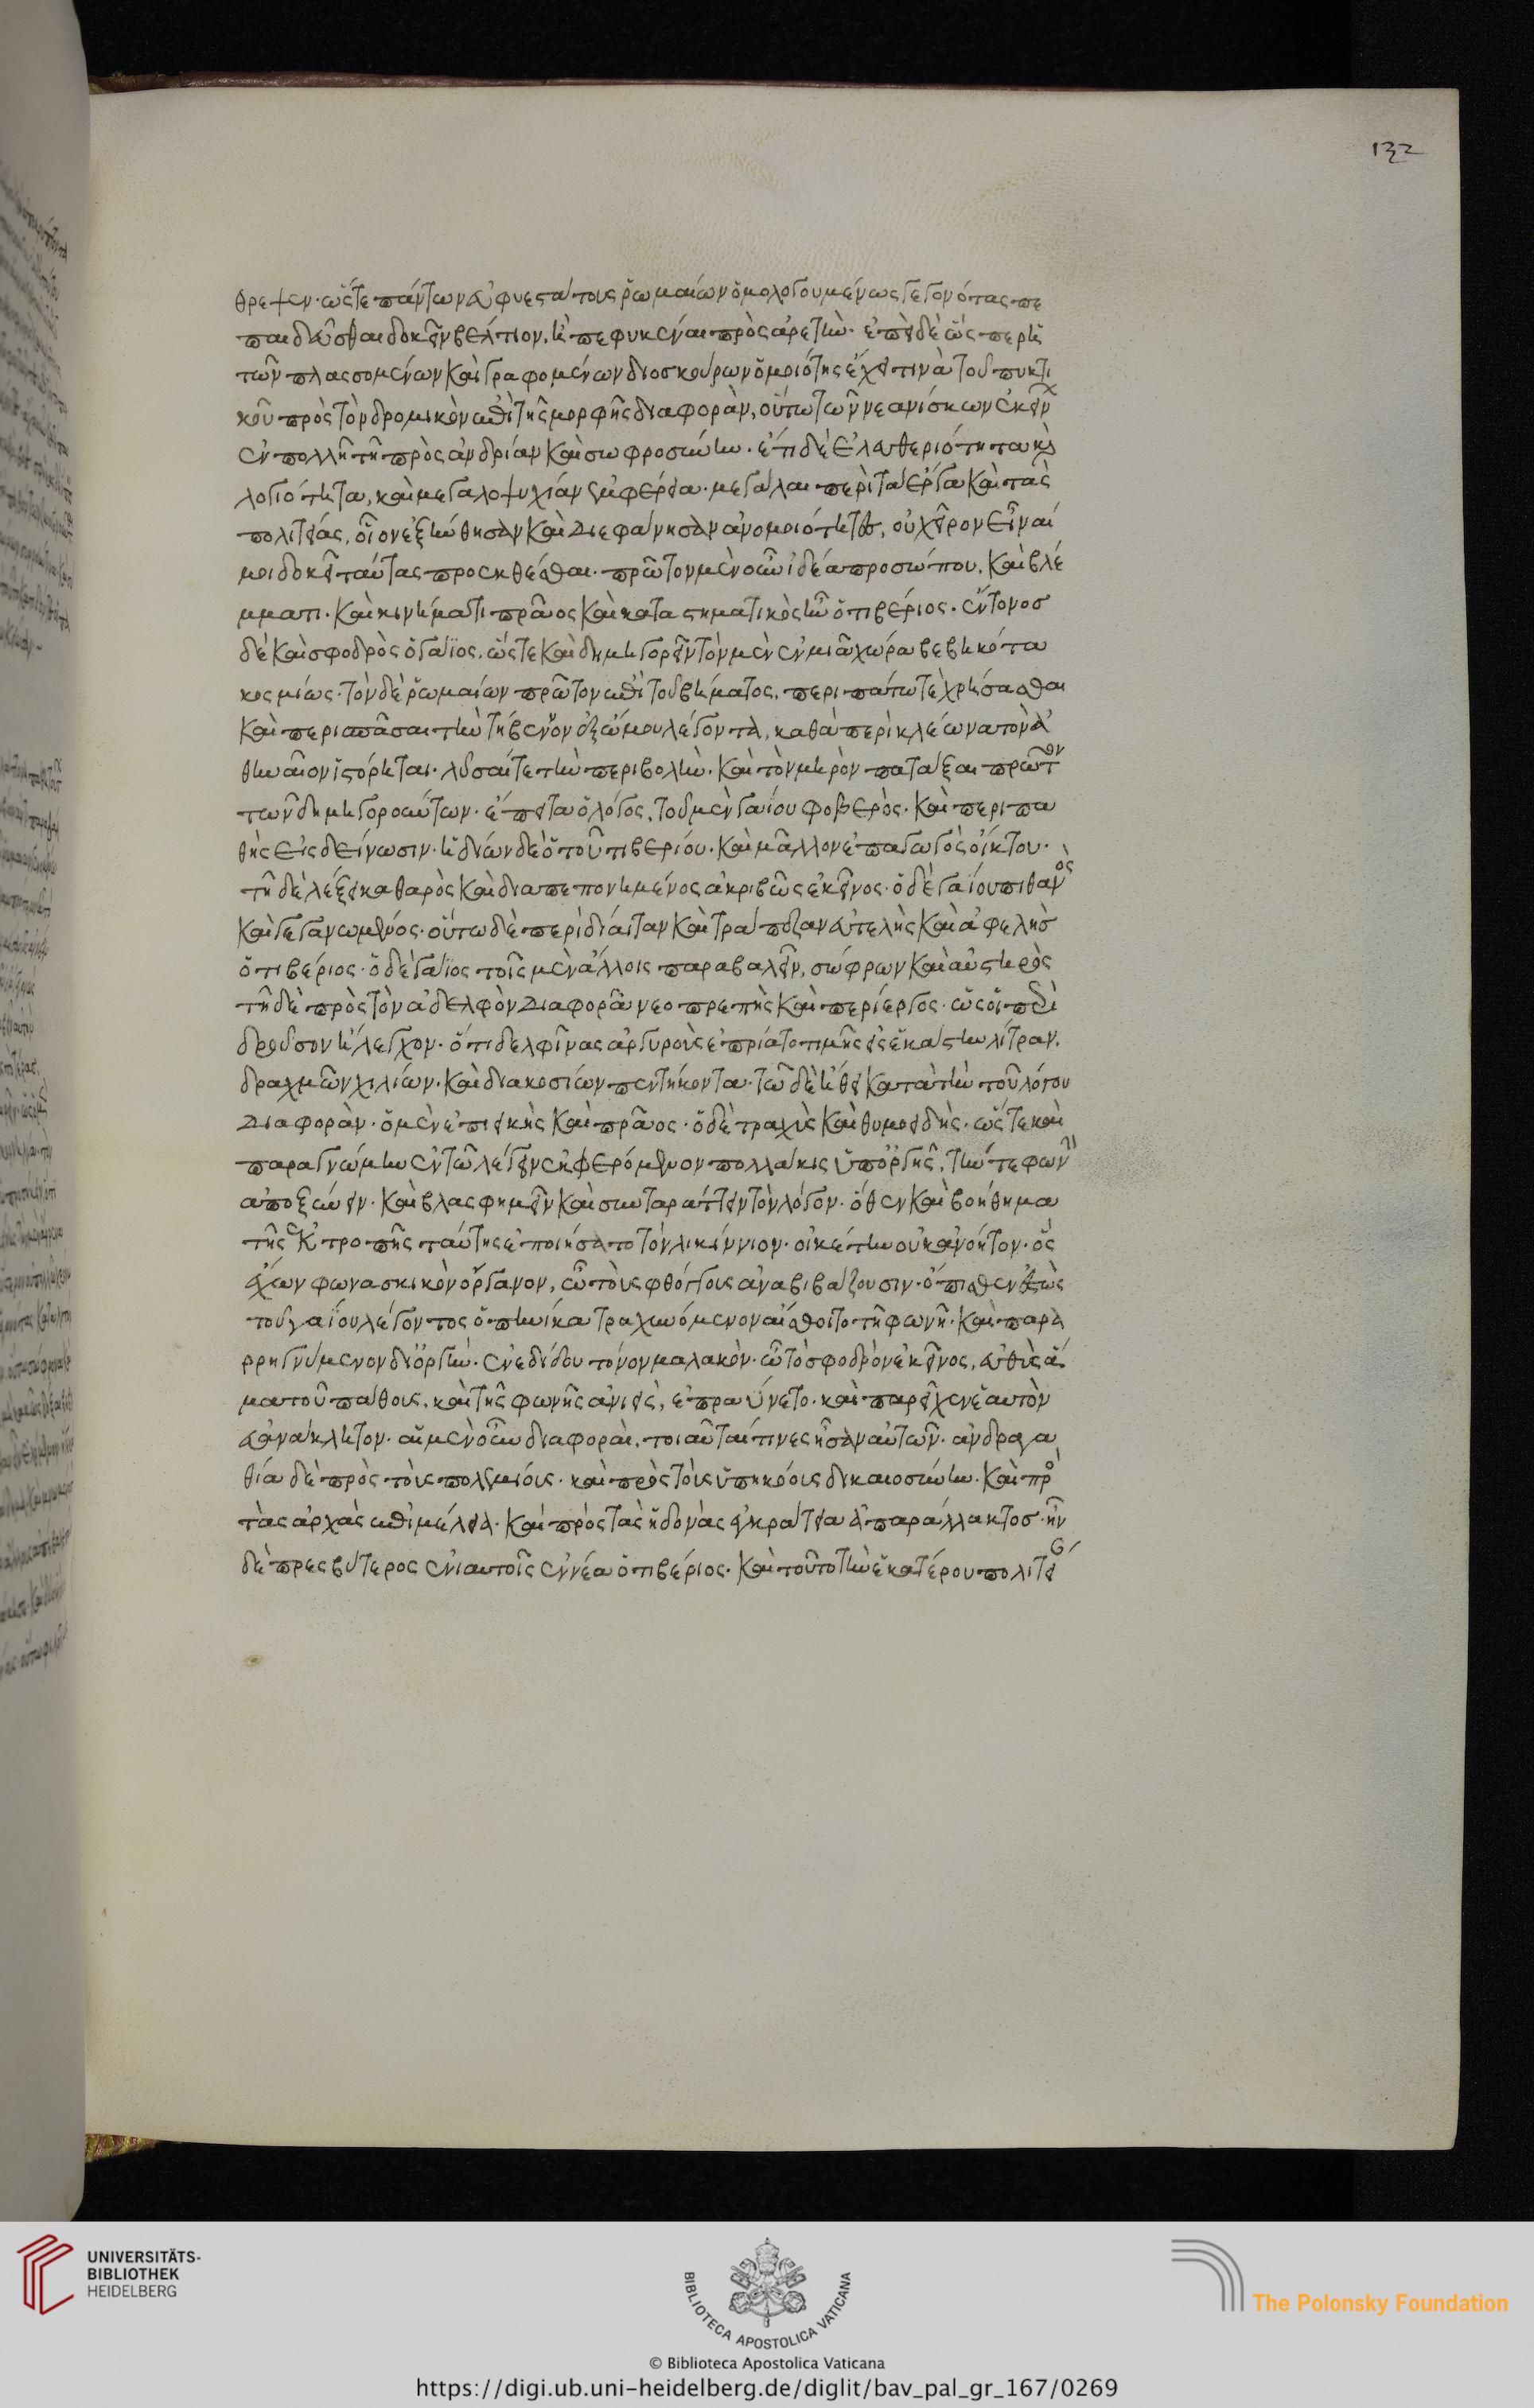 θρεψεν· ὥστε πάντων εὐφυεστάτους ῥωμαίων ὁμολογουμένως γεγονότας πε
παιδεῦσθαι δοκεῖν βέλτιον, ἢ πεφυκέναι πρὸς ἀρετήν. ἐπεὶ δὲ ὥσπερ ἡ
τῶν πλασσομένων καὶ γραφομένων διοσκούρων ὁμοιότης ἔχει τινὰ τοῦ πυκτι
κοῦ πρὸς τὸν δρομικὸν ἐπὶ τῆς μορφῆς διαφορὰν, οὕτω τῶν νεανίσκων ἐκείνων
ἐν πολλῆ τῆ πρὸς ἀνδρίαν καὶ σωφροσύνην. ἔτι δὲ ἐλευθεριότητα καὶ
λογιότητα, καὶ μεγαλοψυχίαν ἐμφερεία. μεγάλαι περὶ τὰ ἔργα καὶ τὰς
πολιτείας, οἷον ἐξήνθησαν καὶ διεφάνησαν ἀνομοιότητες, οὐ χεῖρον εἶναί
μοι δοκεῖ ταύτας προεκθέσθαι. πρῶτον μὲν οὖν ἰδέα προσώπου, καὶ βλέ
μματι. καὶ κινήματι πρᾶος καὶ καταστηματικὸς ἦν ὁ τιβέριος. ἔντονος
δὲ καὶ σφοδρὸς ὁ γαΐος, ὥστε καὶ δημηγορεῖν τὸν μὲν ἐν μιᾶ χώρα βεβηκότα
κοσμίως. τὸν δὲ ῥωμαίων πρῶτον ἐπὶ τοῦ βήματος, περιπάτω τὲ χρήσασθαι
καὶ περισπᾶσαι τὴν τήβενον ἐξ ὤμου λέγοντα, καθάπερ κλέωνα τὸν ἀ
θηναῖον ἱστόρηται. λῦσαί τε τὴν περιβολὴν. καὶ τὸν μηρὸν πατάξαι πρῶτον
τῶν δημηγορούντων. ἔπειτα ὁ λόγος, τοῦ μὲν γαίου φοβερὸς. καὶ περιπα
θὴς εἰς δείνωσιν. ἡδίων δὲ ὁ τοῦ τιβερίου. καὶ μᾶλλον ἐπαγωγὸς οἴκτου.
τῆ δὲ λέξει καθαρὸς καὶ διαπεπονημένος ἀκριβῶς ἐκεῖνος. ὁ δὲ γαΐου πιθανὸς
καὶ γεγανωμένος. οὕτω δὲ περὶ δίαιταν καὶ τράπεζαν εὐτελὴς καὶ ἀφελὴς
ὁ τιβέριος. ὁ δὲ γαΐος τοῖς μὲν ἄλλοις παραβαλεῖν, σώφρων καὶ αὐστηρὸς
τῆ δὲ πρὸς τὸν ἀδελφὸν διαφορᾶ νεοπρεπὴς καὶ περίεργος. ὡς οἱ περὶ
δροῦσον ἤλεγχον. ὅτι δελφῖνας ἀργυροῦς ἐπρίατο τιμῆς εἰς ἑκάστην λίτραν.
δραχμῶν χιλίων. καὶ διακοσίων πεντήκοντα. τῶ δὲ ἤθει κατὰ τὴν τοῦ λόγου
διαφορὰν. ὁ μὲν ἐπιεικὴς καὶ πρᾶος. ὁ δὲ τραχὺς καὶ θυμοειδής. ὥστε καὶ
παρὰ γνώμην ἐν τῶ λέγειν ἐκφερόμενον πολλάκις ὑπ' ὀργῆς, τήν τε φωνὴν
ἀποξύνειν. καὶ βλασφημεῖν καὶ συνταράττειν τὸν λόγον. ὅθεν καὶ βοήθημα
τῆς ἐκτροπῆς ταύτης ἐποιήσατο τὸν λικίννιον. οἰκέτην οὐκ ἀνόητον. ὃς
ἔχων φωνασκικὸν ὄργανον, ὧ τοὺς φθόγγους ἀναβιβάζουσιν. ὄπισθεν ἑστὼς
τοῦ γαΐου λέγοντος ὁπηνίκα τραχυνόμενον αἴσθοιτο τῆ φωνῆ. καὶ παρα
ρρηγνύμενον δι' ὀργὴν. ἐνεδίδου τόνον μαλακὸν. ὧ τὸ σφοδρὸν ἐκεῖνος, εὐθὺς ἅ
μα τοῦ πάθους. καὶ τῆς φωνῆς ἀνιεὶς, ἐπραΰνετο. καὶ παρεῖχεν ἑαυτὸν
εὐανάκλητον. αἱ μὲν οὖν διαφοραὶ. τοιαῦταί τινες ἦσαν αὐτῶν. ἀνδραγα
θία δὲ πρὸς τοὺς πολεμίους. καὶ πρὸς τοὺς ὑπηκόους δικαιοσύνην. καὶ πρὸ
τὰς ἀρχὰς ἐπιμέλεια. καὶ πρὸς τὰς ἡδονὰς ἐγκράτεια ἀπαράλλακτος. ἦν
δὲ πρεσβύτερος ἐνιαυτοῖς ἐννέα ὁ τιβέριος. καὶ τοῦτο τὴν ἑκατέρου πολιτεί
132
UNIVERSITÄTS-
BIBLIOTHEK
HEIDELBERG
BIBLIOTECA APOSTOLICA VATICANA
The Polonsky Foundation
© Biblioteca Apostolica Vaticana
https://digi.ub.uni-heidelberg.de/diglit/bav_pal_gr_167/0269